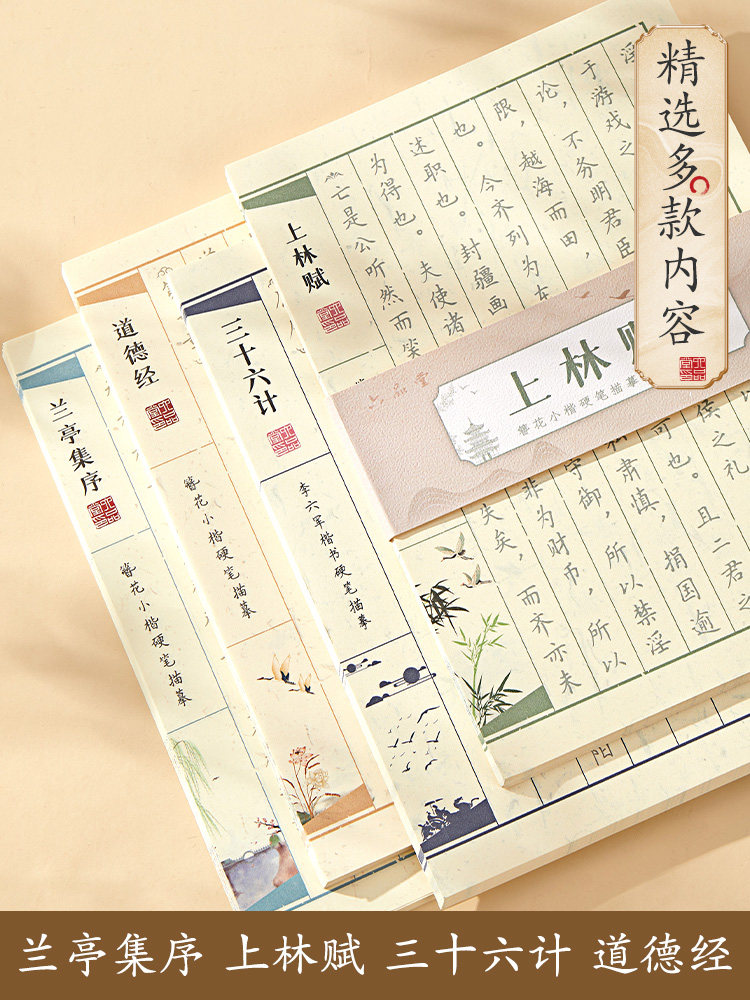 精选多款内容
淫
于游戏之
论，不务明君臣
限，越海而田，
也。今齐列为东
述职也。封疆画
为得也。夫使诸
亡是公听然而笑
上林赋
六品堂
上林赋
簪花小楷硬笔描摹
侯之礼
可也。且二君之
私肃慎，捐国逾
守御，所以禁淫
非为财币，所以
失矣，而齐亦未
三十六计
李六军楷书硬笔描摹
阳
道德经
簪花小楷硬笔描摹
兰亭集序
簪花小楷硬笔描摹
兰亭集序 上林赋 三十六计 道德经